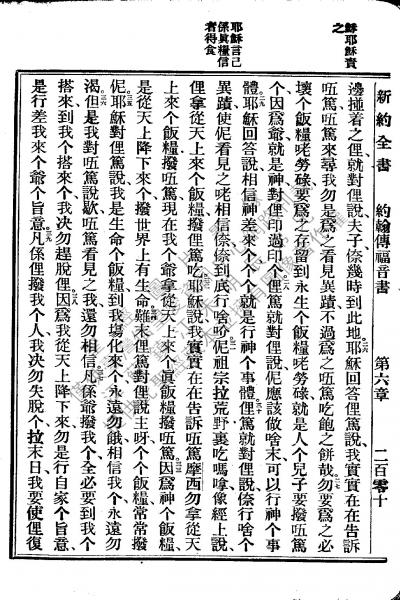 穌耶穌責之
耶穌言己係眞糧信者得食
新約全書 約翰傳福音書 第六章 二百零十
邊撞着之俚就對俚說夫子倷幾時到此地耶穌回答俚篤說我實實在在告訴
㕶篤㕶篤來尋我勿是爲之看見異蹟不過爲之㕶篤吃飽之餅哉勿要爲之必
壞个飯糧咾勞碌要爲之存留到永生个飯糧咾勞碌就是人个兒子要撥㕶篤
个因爲爺就是神對俚印過印个俚篤就對俚說伲應該做啥末可以行神个事
體耶穌回答說相信神差來个个个就是行神个事體俚篤就對俚說倷行啥个
異蹟使伲看見之咾相信倷倷到底行啥呀伲祖宗拉荒野裏吃嗎嗱像經上說
俚拿從天上來个飯糧撥俚篤吃耶穌說我實實在在告訴㕶篤摩西勿拿從天
上來个飯糧撥㕶篤現在我个爺拿從天上來个眞飯糧撥㕶篤因爲神个飯糧
是從天上降下來个撥世界上有生命雖末俚篤對俚說主呀个个飯糧常常撥
伲耶穌對俚篤說我是生命个飯糧到我塲化來个永遠勿餓相信我个永遠勿
渴但是我對㕶篤說歇㕶篤看見之我還勿相信凡係爺撥我个全必要到我个
搭來到我个搭來个我决勿趕脫俚因爲我從天上降下來勿是行自家个旨意
是行差我來个爺个旨意凡係俚撥我个人我决勿失脫个拉末日我要使俚復